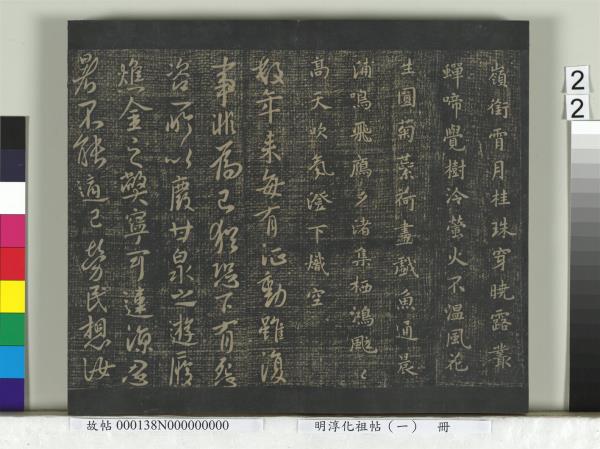 嶺銜霄月桂珠穿曉露叢
蟬啼覺樹冷螢火不溫風花
生圓菊蘂荷盡戲魚通晨
浦鳴飛鴈夕渚集栖鴻颸々
高天吹氛澄下熾空
數年来每有征動雖復
事非為己猶恐下有怨
咨所以廢甘泉之遊履
燋金之弊寧可違涼忍
暑不能適己勞民想汝
22
故帖 000138N000000000
明淳化祖帖(一) 冊